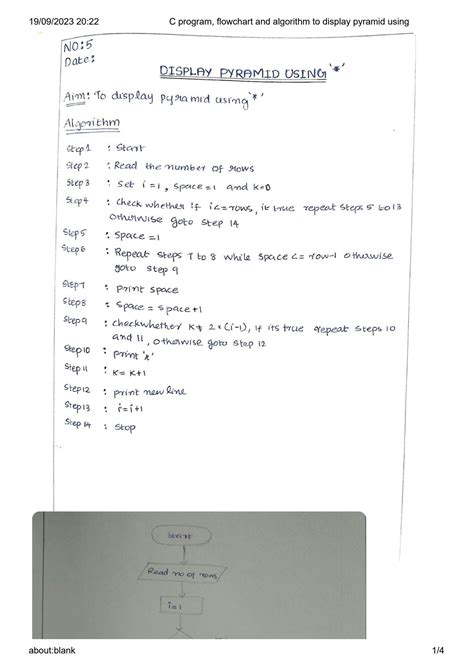 19/09/2023 20:22
C program, flowchart and algorithm to display pyramid using
NO:5
Date:
DISPLAY PYRAMID USING '*'
Aim: To display pyramid using '*'
Algorithm
Step1 : Start
Step2 : Read the number of rows
Step3 : Set i=1, space=1 and k=0
Step4 : Check whether if i<=rows, it true repeat steps 5 to 13
otherwise goto step 14
Step5 : Space=1
Step6 : Repeat steps 7 to 8 while space <= row-i otherwise
goto step 9
Step7 : print space
Step8 : Space = space+1
Step9 : checkwhether k≠ 2*(i-1), if its true repeat steps 10
and 11, otherwise goto step 12
Step10 : print '*'
Step11 : K= K+1
Step12 : print newline
Step13 : i=i+1
Step14 : Stop
Read no of rows
i=1
about:blank
1/4